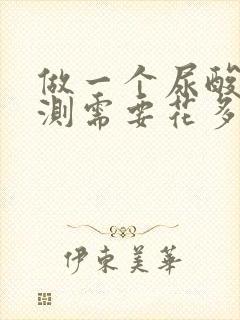 做一个尿酸
测需要花多
伊東美華